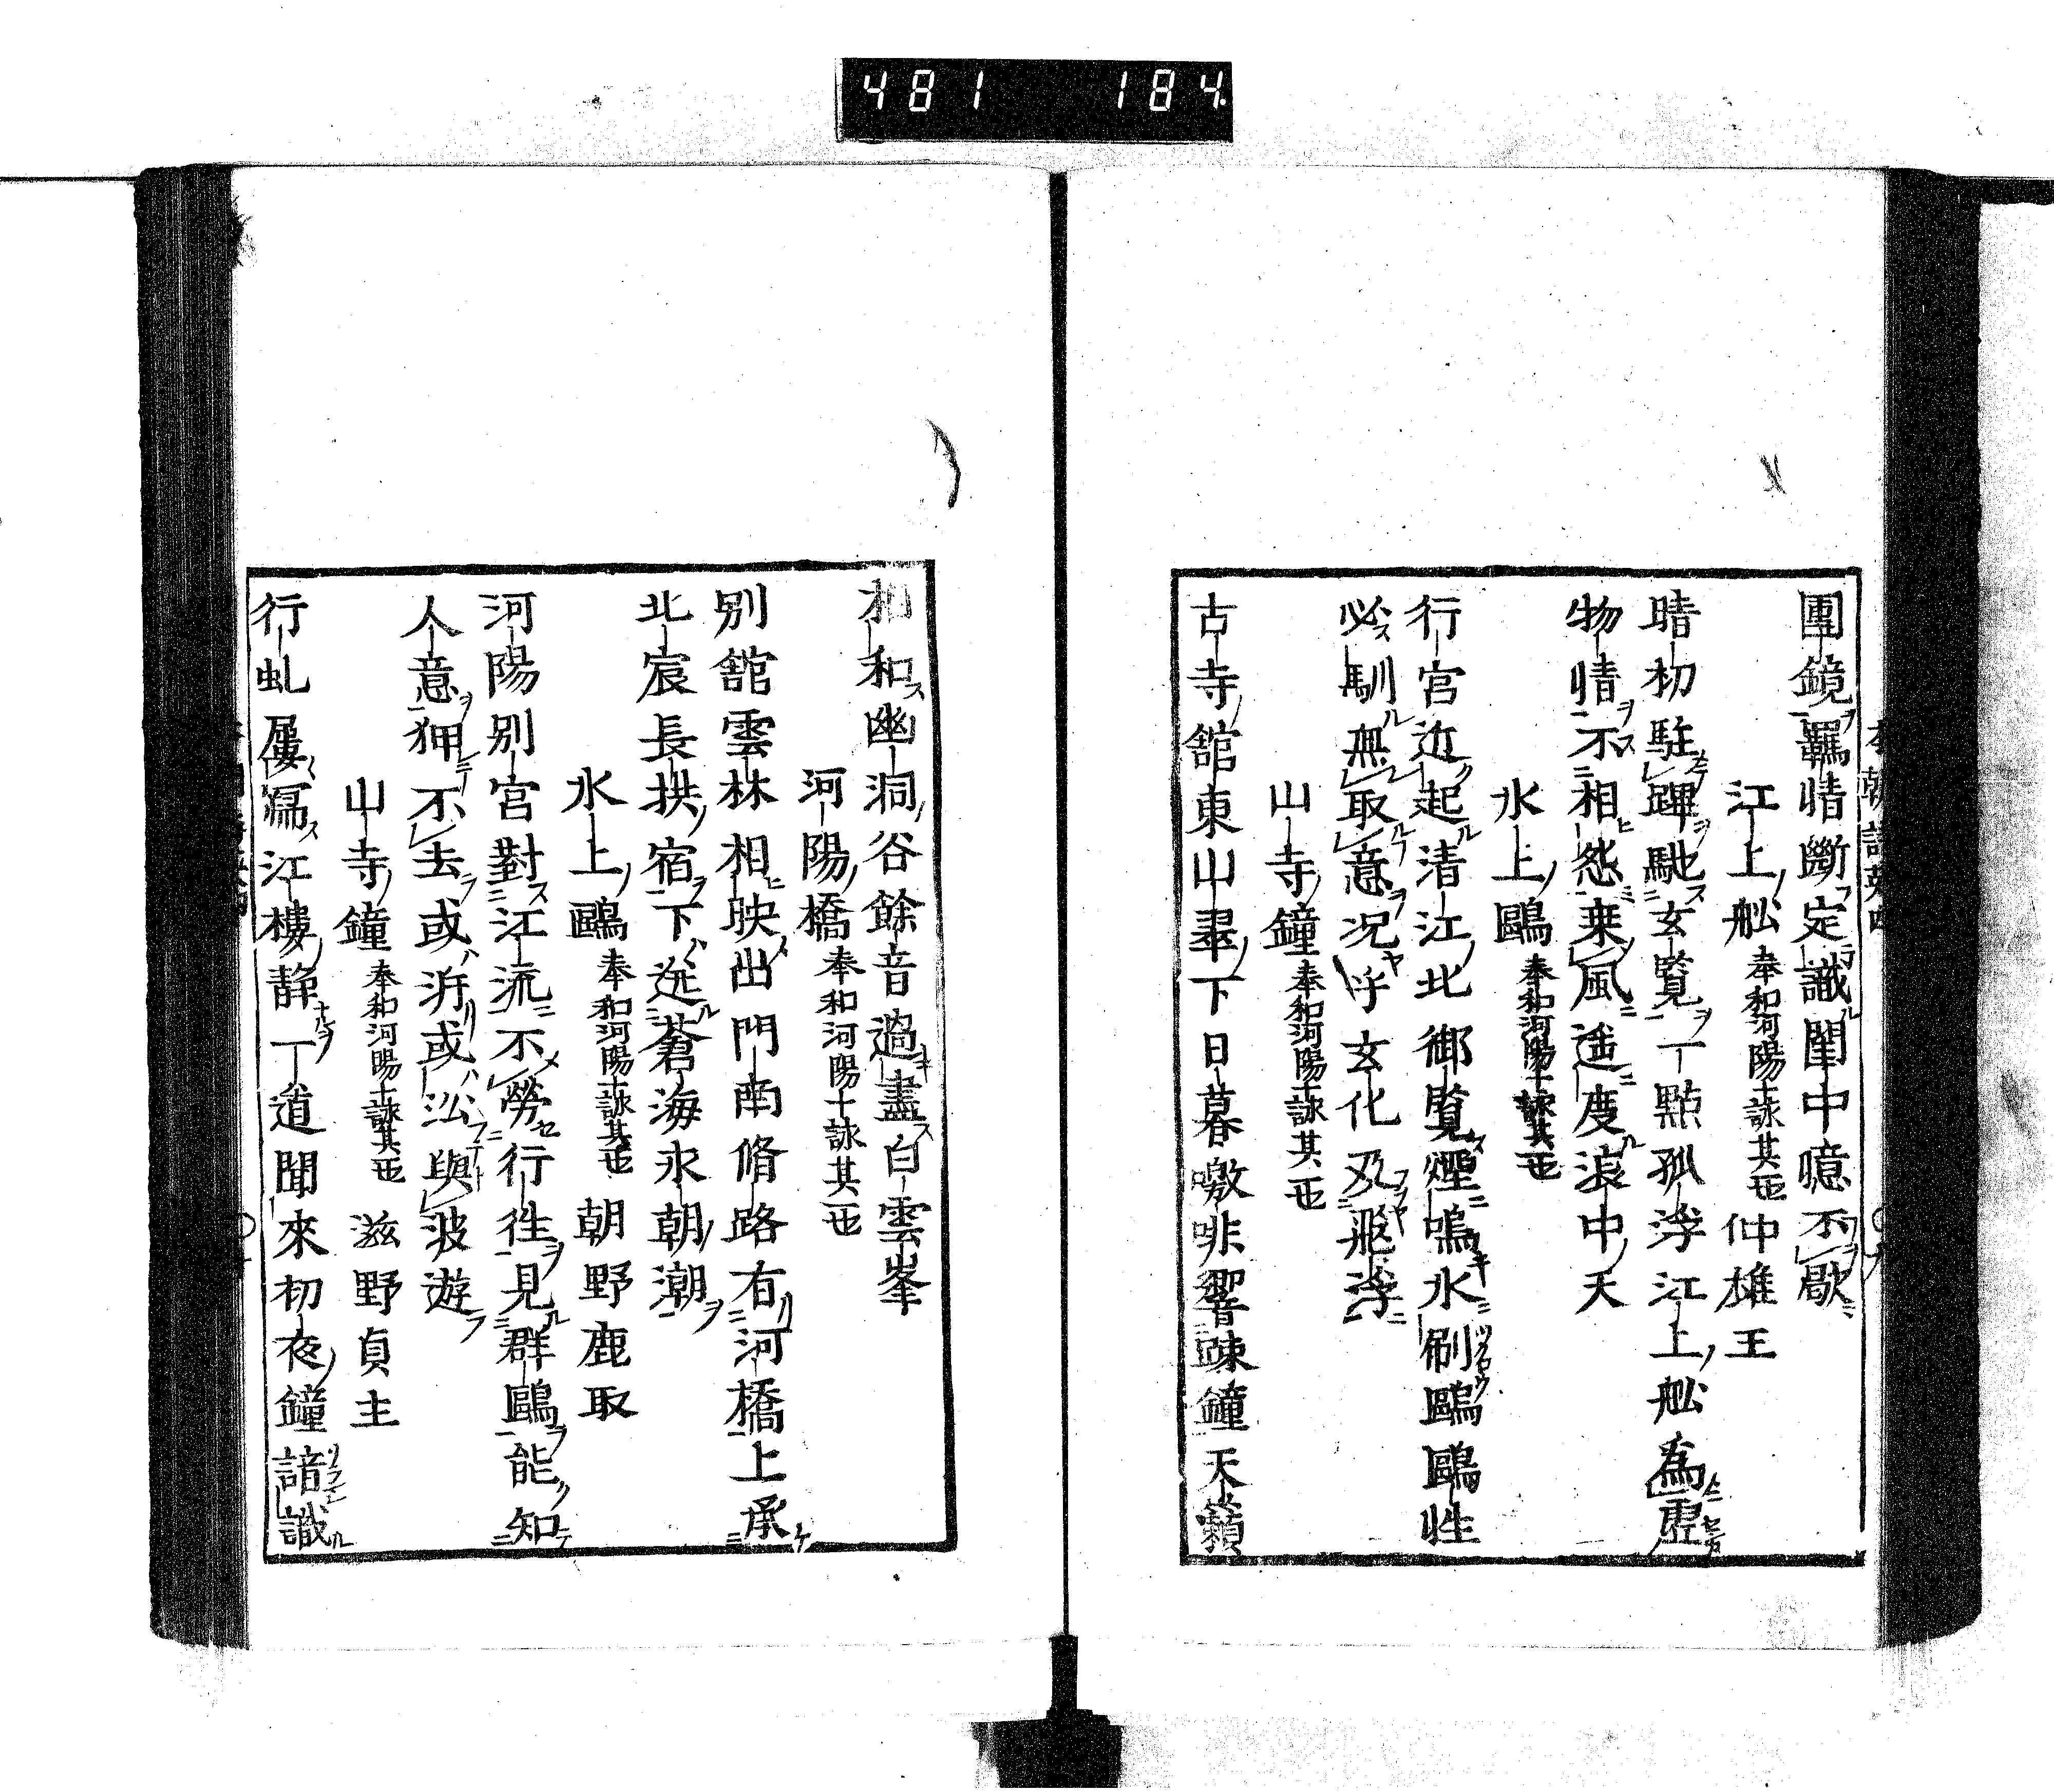 481 184
團鏡羈情斷定識閨中憶不歇
江上舩奉和河陽十詠其二也仲雄王
晴初駐蹕馳玄覽一點孤浮江上舩為虛
物情不相怨乗風遥度浪中天
水上鷗奉和河陽十詠其三也
行宮近起清江北御覽煙鳴水刷鷗鷗性
必馴無取意况乎玄化及飛浮
山寺鐘奉和河陽十詠其四也
古寺舘東山翠下日暮嗷啡響疎鐘天籟
相和幽洞谷餘音過盡白雲峯
河陽橋奉和河陽十詠其一也
別舘雲林相映出門南脩路有河橋上承
北宸長拱宿下送蒼海永朝潮
水上鷗奉和河陽十詠其二也朝野鹿取
河陽別宮對江流不勞行徃見群鷗能知
人意狎不去或泝或㳂與波遊
山寺鐘奉和河陽十詠其三也滋野貞主
行虬屢漏江樓静一道聞來初夜鐘諳識